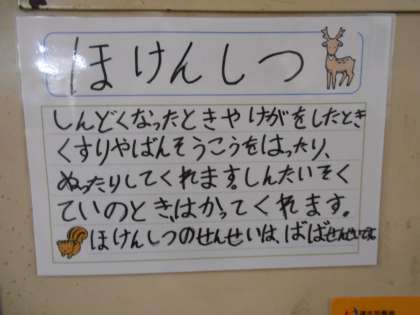 ほけんしつ
しんどくなったときや けがをしたとき
くすりやばんそうこうをはったり、
ぬったりしてくれます。しんたいそく
ていのとき、はかってくれます。
ほけんしつのせんせいは、ばばせんせいです。